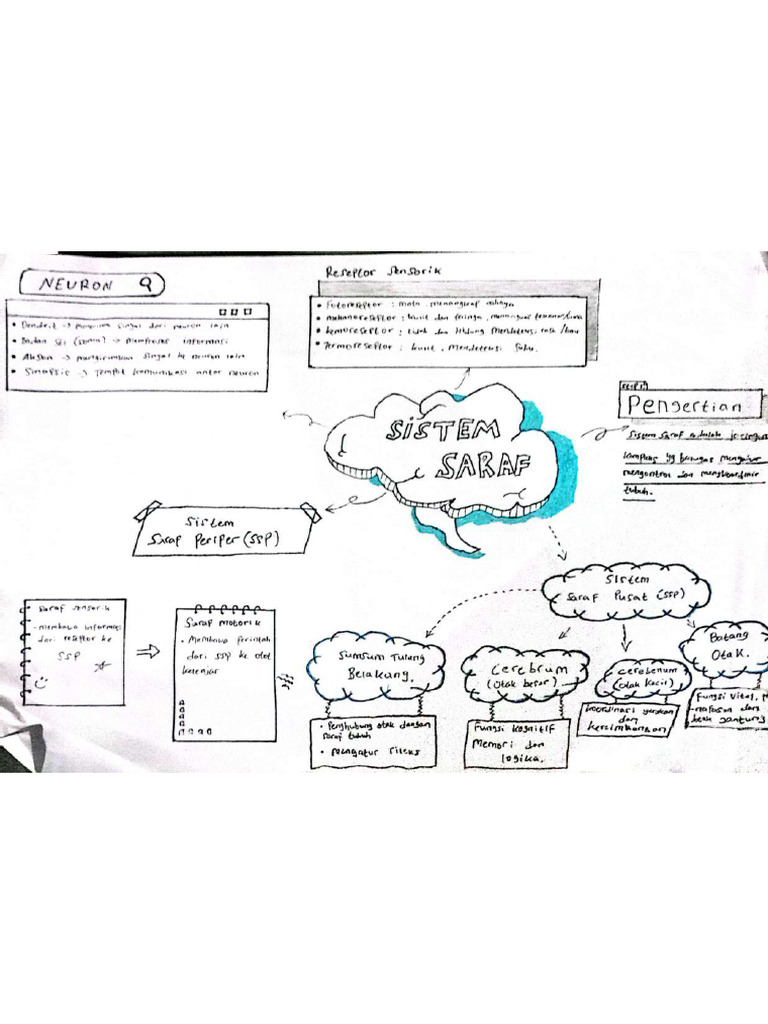 NEURON
• Dendrit → menerima singal dari neuron lain
• Badan Sel (soma) → memproses informasi
• Akson → mengirimkan singal ke neuron lain
• Sinapsis → Tempat komunikasi antar neuron
Reseptor sensorik
• Fotoreseptor : mata, menangkap cahaya
• mekanoreseptor : kulit dan telinga,
• kemoreseptor : lidah dan hidung mendeteksi rasa /bau
• Termoreseptor : kulit, mendeteksi suhu.
SISTEM
SARAF
Pengertian
Sistem saraf adalah
kompleks yg bertugas
mengontrol dan
tubuh.
Sistem
Saraf Periper (SSP)
• Saraf sensorik
- membawa informasi
dari reseptor ke
SSP
Saraf motorik
• Membawa perintah
dari SSP ke otot
kelenjar
Sistem
Saraf Pusat (SSP)
Sumsum Tulang
Belakang.
• Penghubung otak dengan
saraf tubuh
• mengatur
Cerebrum
(Otak besar)
Fungsi kognitif
Memori dan
logika.
cerebenum
(Otak kecil)
koordinasi gerakan
dan
Batang
Otak.
Fungsi Vital,
-nafasan dan
jantung